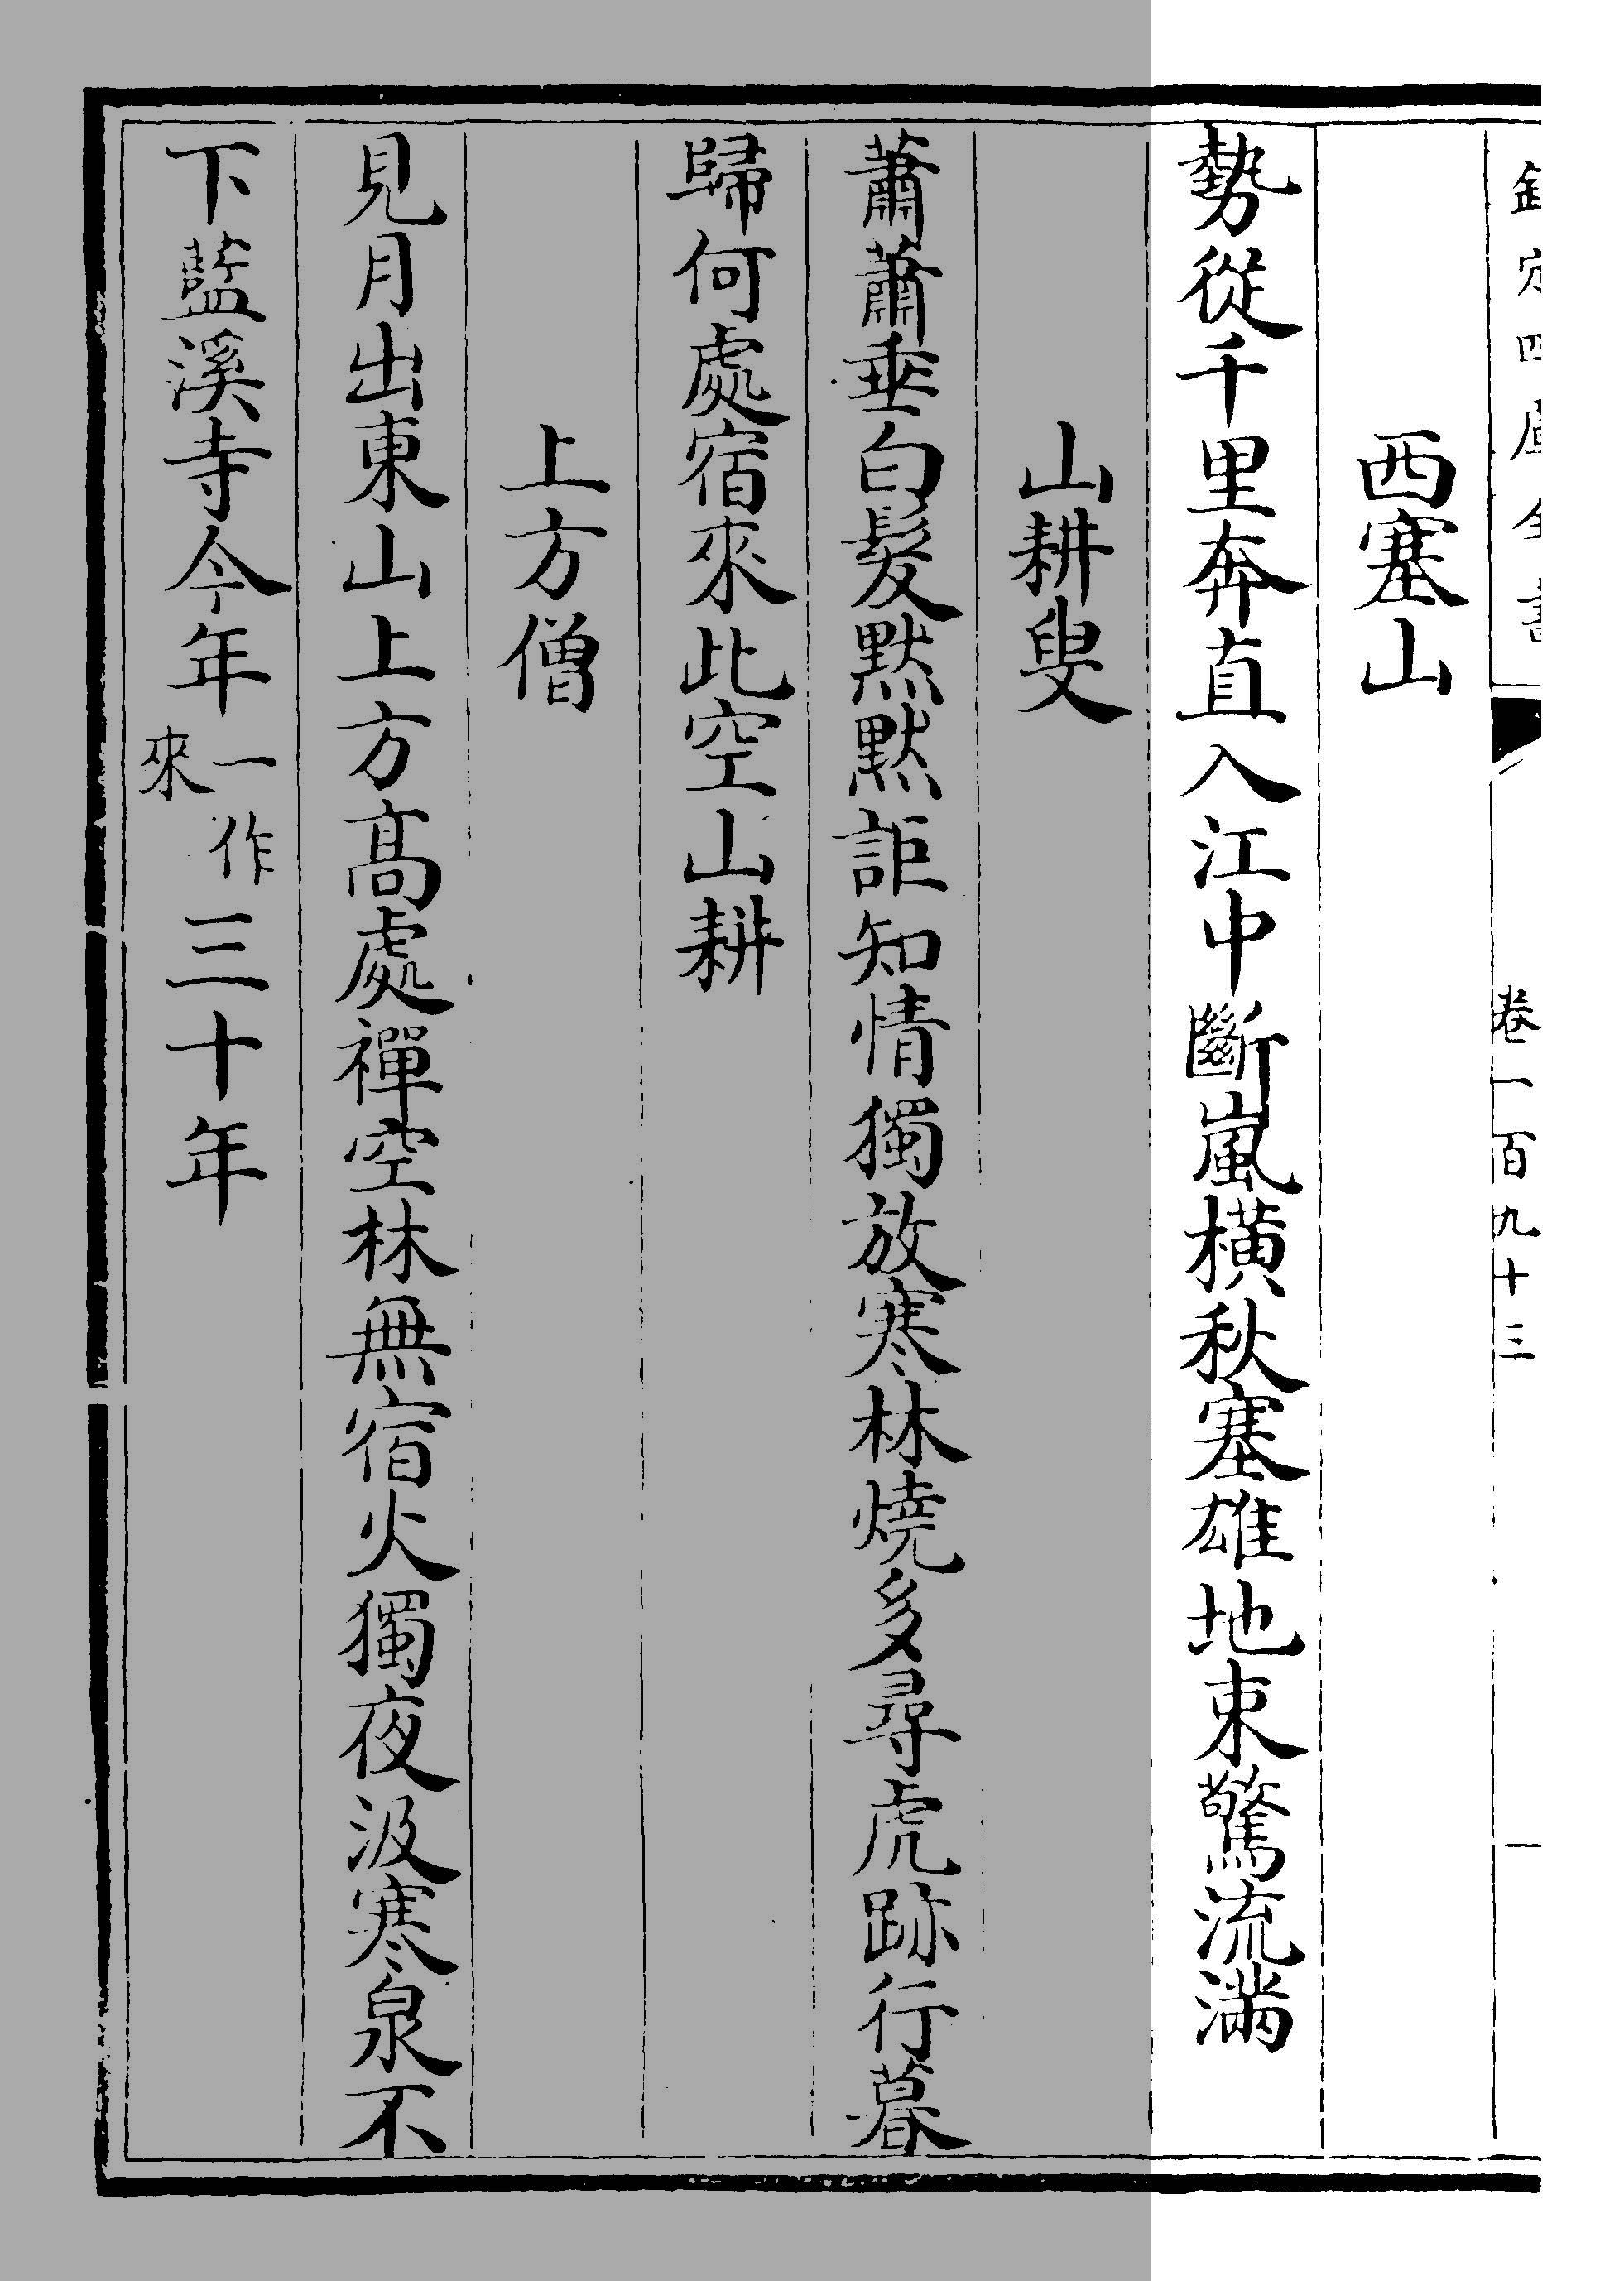 欽定四庫全書
卷一百九十三
一
西塞山
勢從千里奔直入江中斷嵐橫秋塞雄地束驚流滿
山耕叟
蕭蕭垂白髮默默詎知情獨放寒林燒多尋虎跡行暮
歸何處宿來此空山耕
上方僧
見月出東山上方高處禪空林無宿火獨夜汲寒泉不
下藍溪寺今年一作來三十年